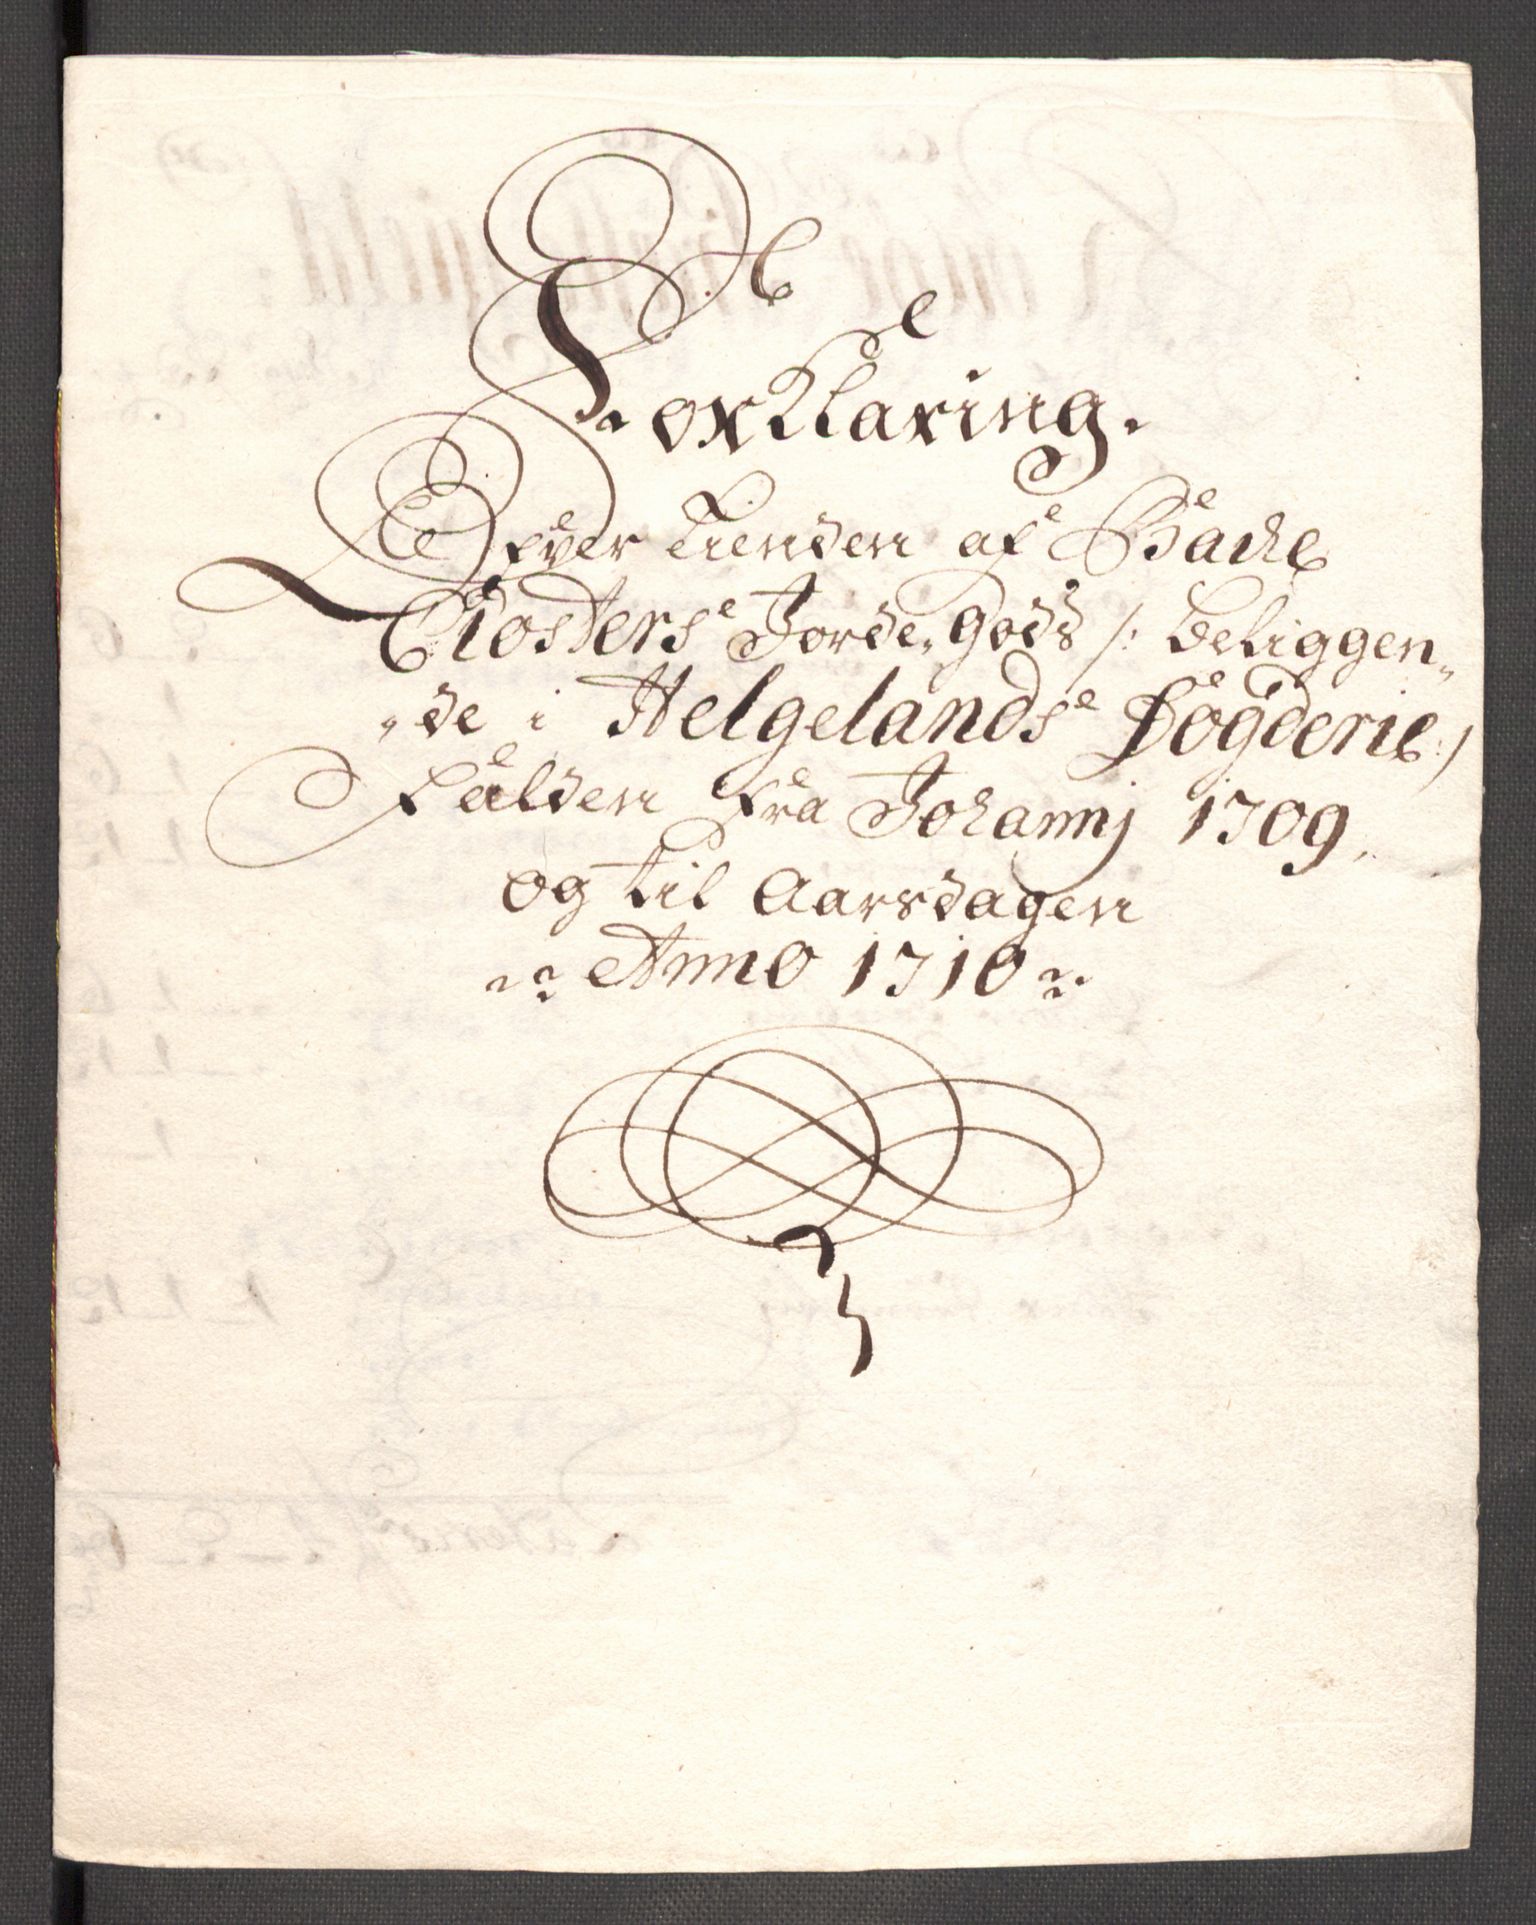 Forklaring.
Ofver Tienden af Backe
Closters Jorde-Gods /: beliggen-
-de i Helgelands Fogderie :/
falden fra Johannj 1709.
og til Aarsdagen
Anno 1710